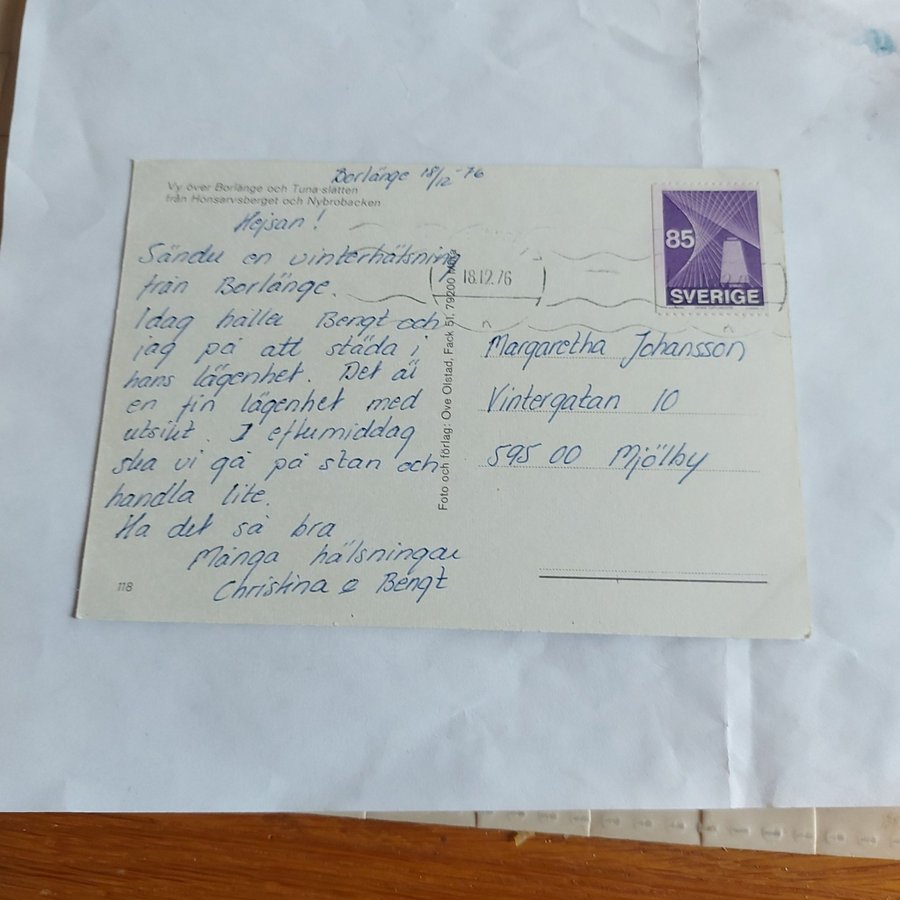 Borlänge 18/12 -76
Vy över Borlänge och Tuna-slätten
från Hönsarvsberget och Nybrobacken
Hejsan!
Sänder en vinterhälsning
från Borlänge.
Idag håller Bengt och
jag på att städa i
hans lägenhet. Det är
en fin lägenhet med
utsikt. I eftermiddag
ska vi gå på stan och
handla lite.
Ha det så bra
Många hälsningar
Christina & Bengt
118
Foto och förlag: Ove Olstad, Fack 51, 79200
18.12.76
85
SVERIGE
Margaretha Johansson
Vintergatan 10
595 00 Mjölby